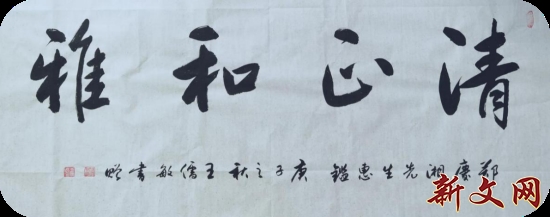 清正和雅
郑廉湘先生惠鑑 庚子之秋 王儒敏书赠
新文网